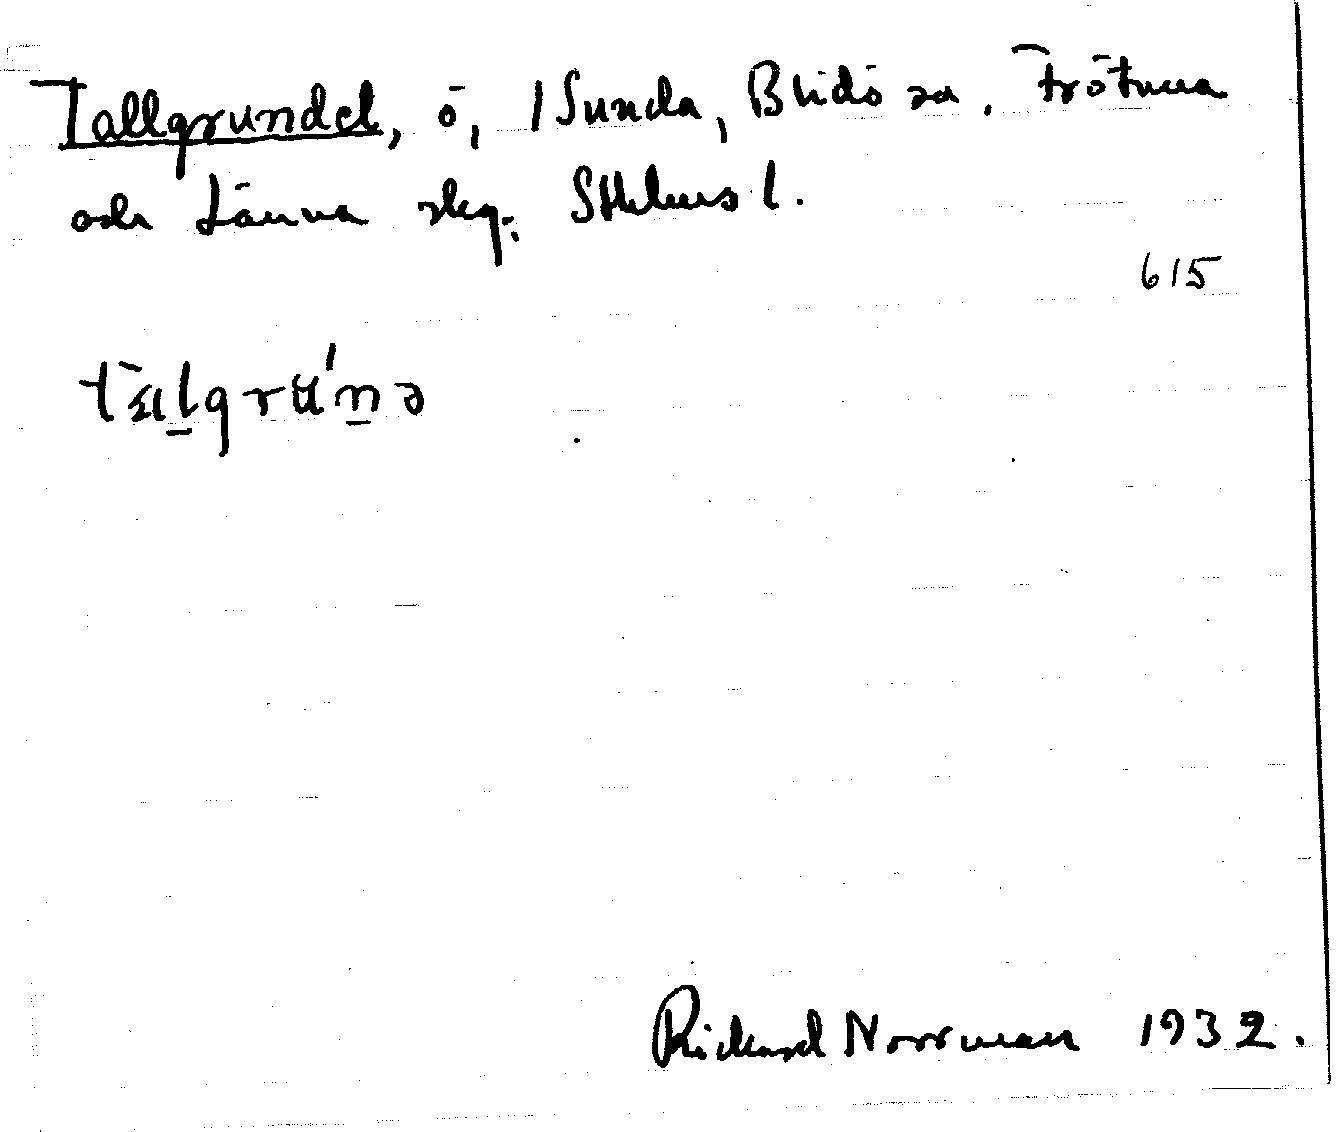 Tallgrundet, ö, 1 Sunda, Blidö sn. Frötuna
och Länna skg. Sthlms l.
615
Rickard Norrman 1932.